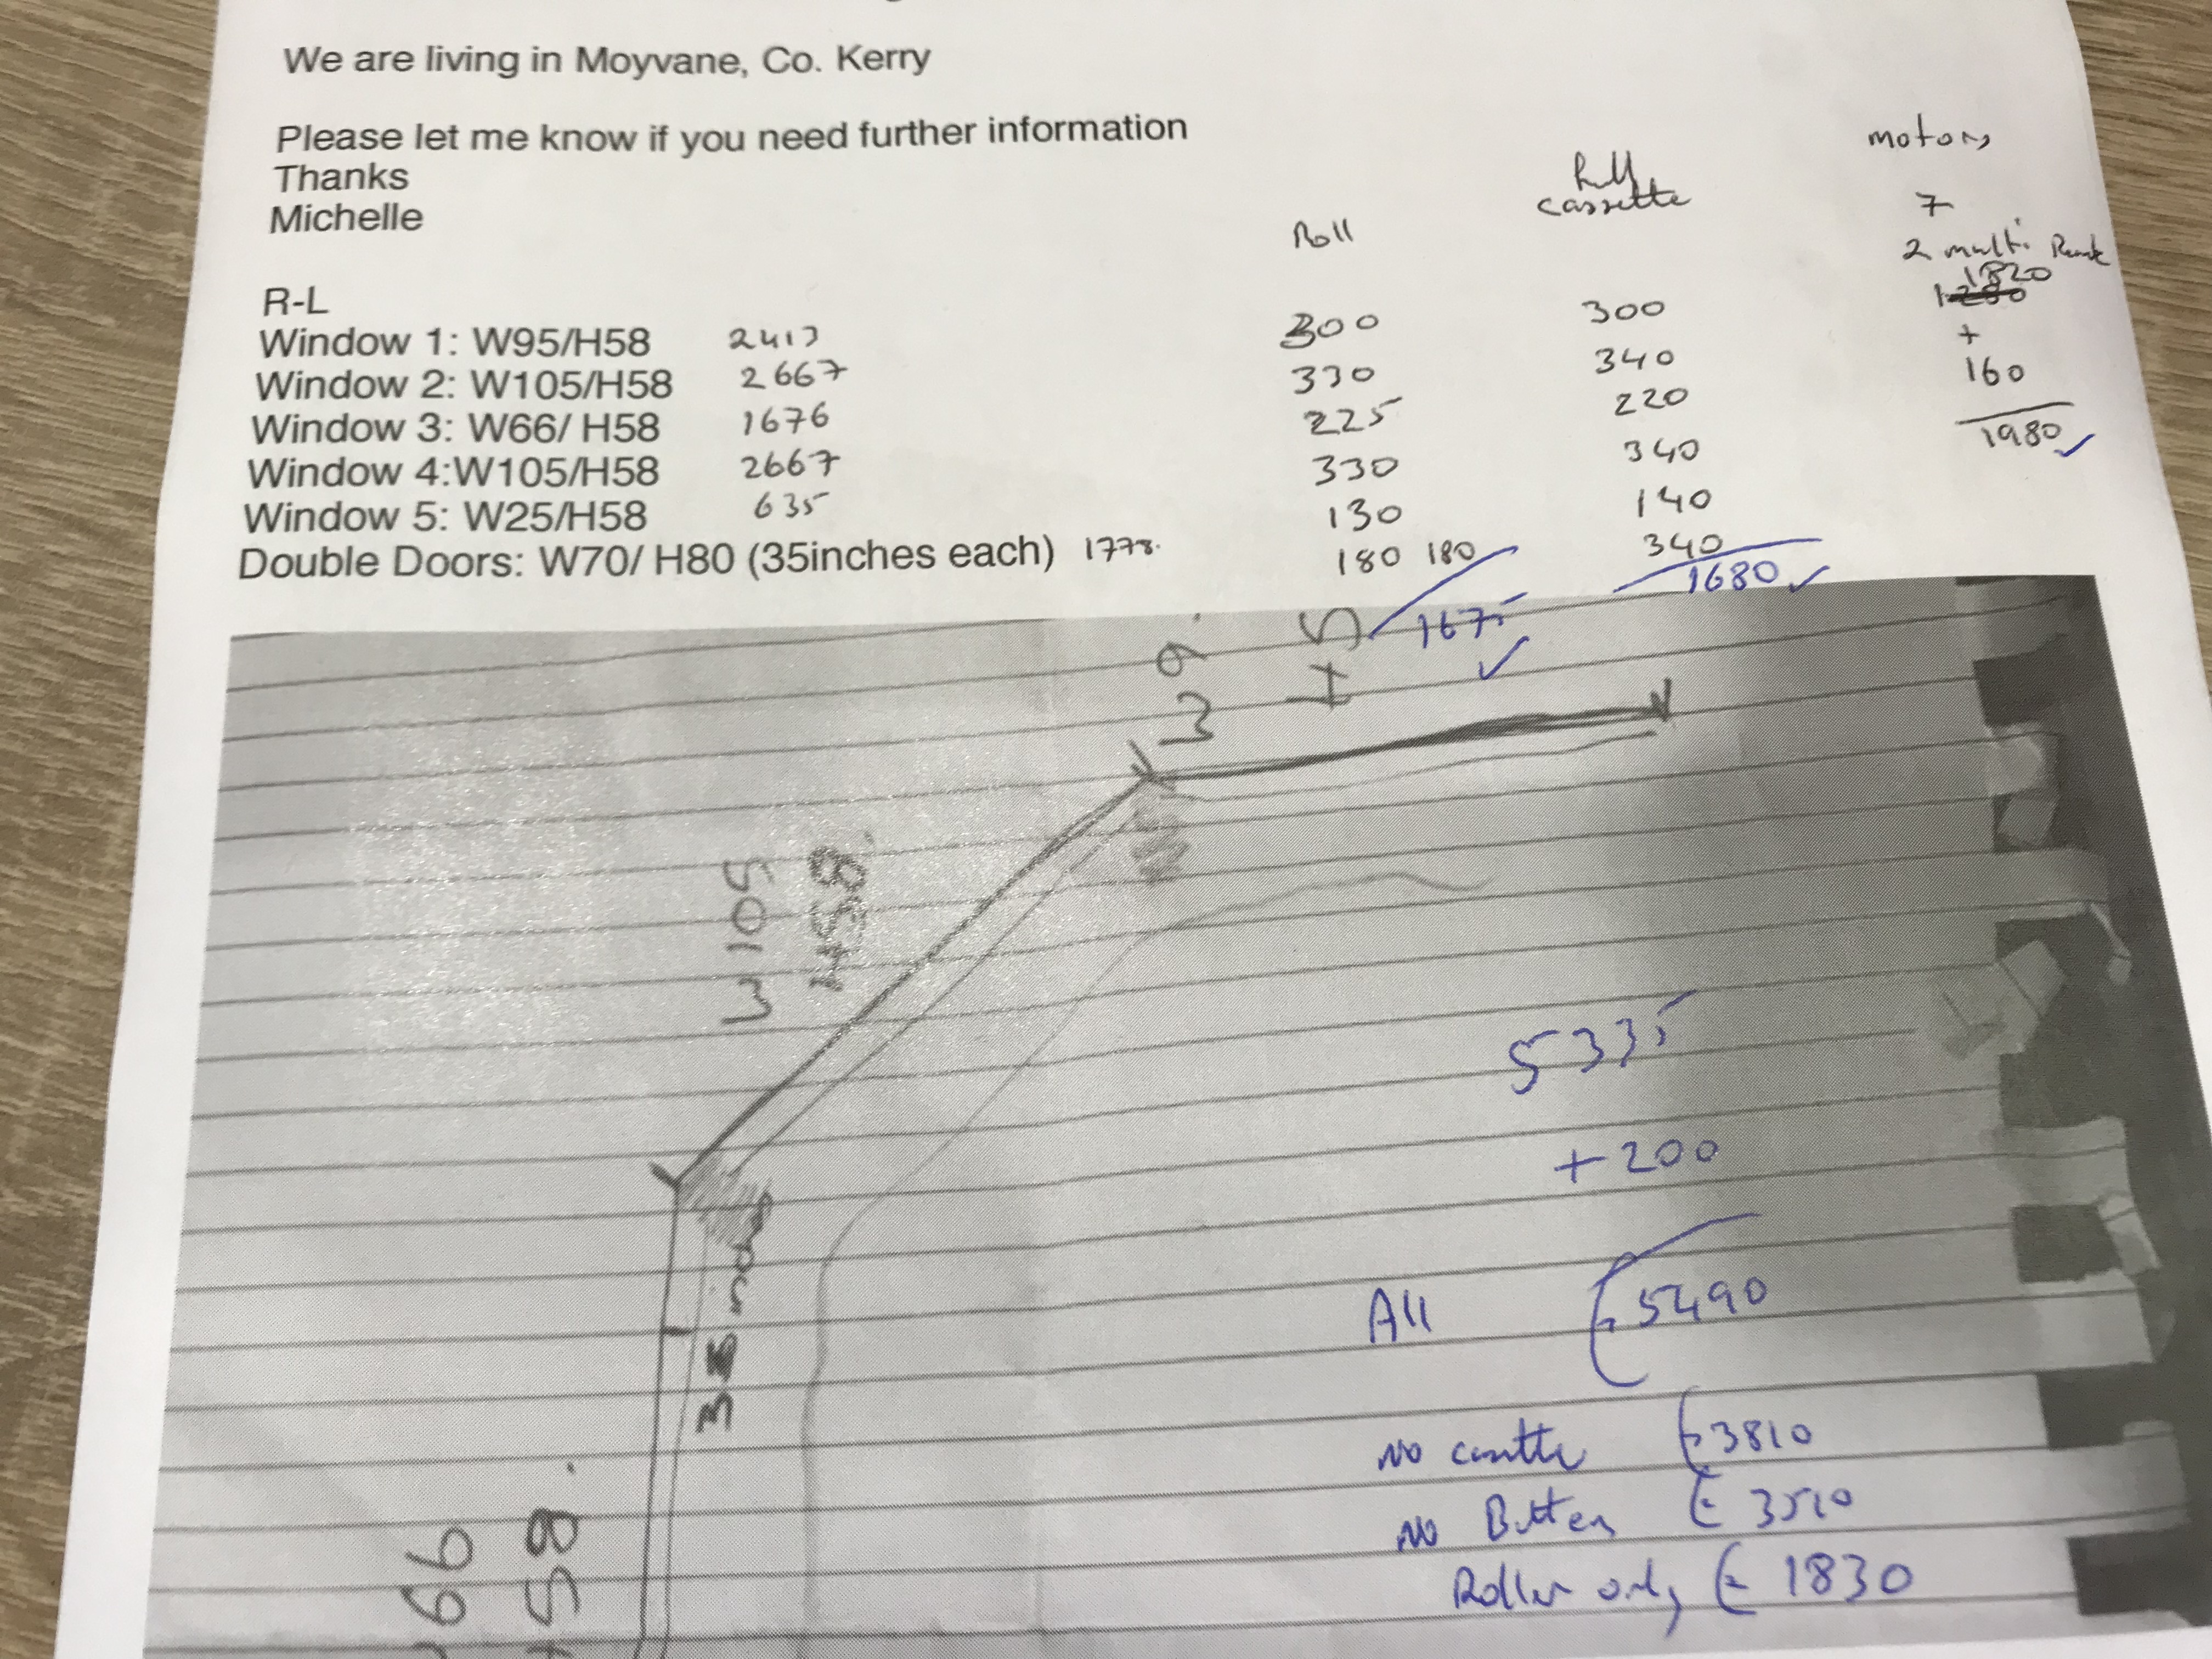 We are living in Moyvane, Co. Kerry
Please let me know if you need further information
Thanks
Michelle
Roll
Full cassette
motors
7
2 multi
1820
+
160
1980 ✓
R-L
Window 1: W95/H58 2413 300 300
Window 2: W105/H58 2667 330 340
Window 3: W66/ H58 1676 225 220
Window 4:W105/H58 2667 330 340
Window 5: W25/H58 635 130 140
Double Doors: W70/ H80 (35inches each) 1778. 180 180 340
1675 ✓
1680 ✓
W9
H5
W105
H58.
35 inches
66
H58.
5335
+200
All € 5490
No cassette € 3810
No Battery € 3510
Roller only € 1830